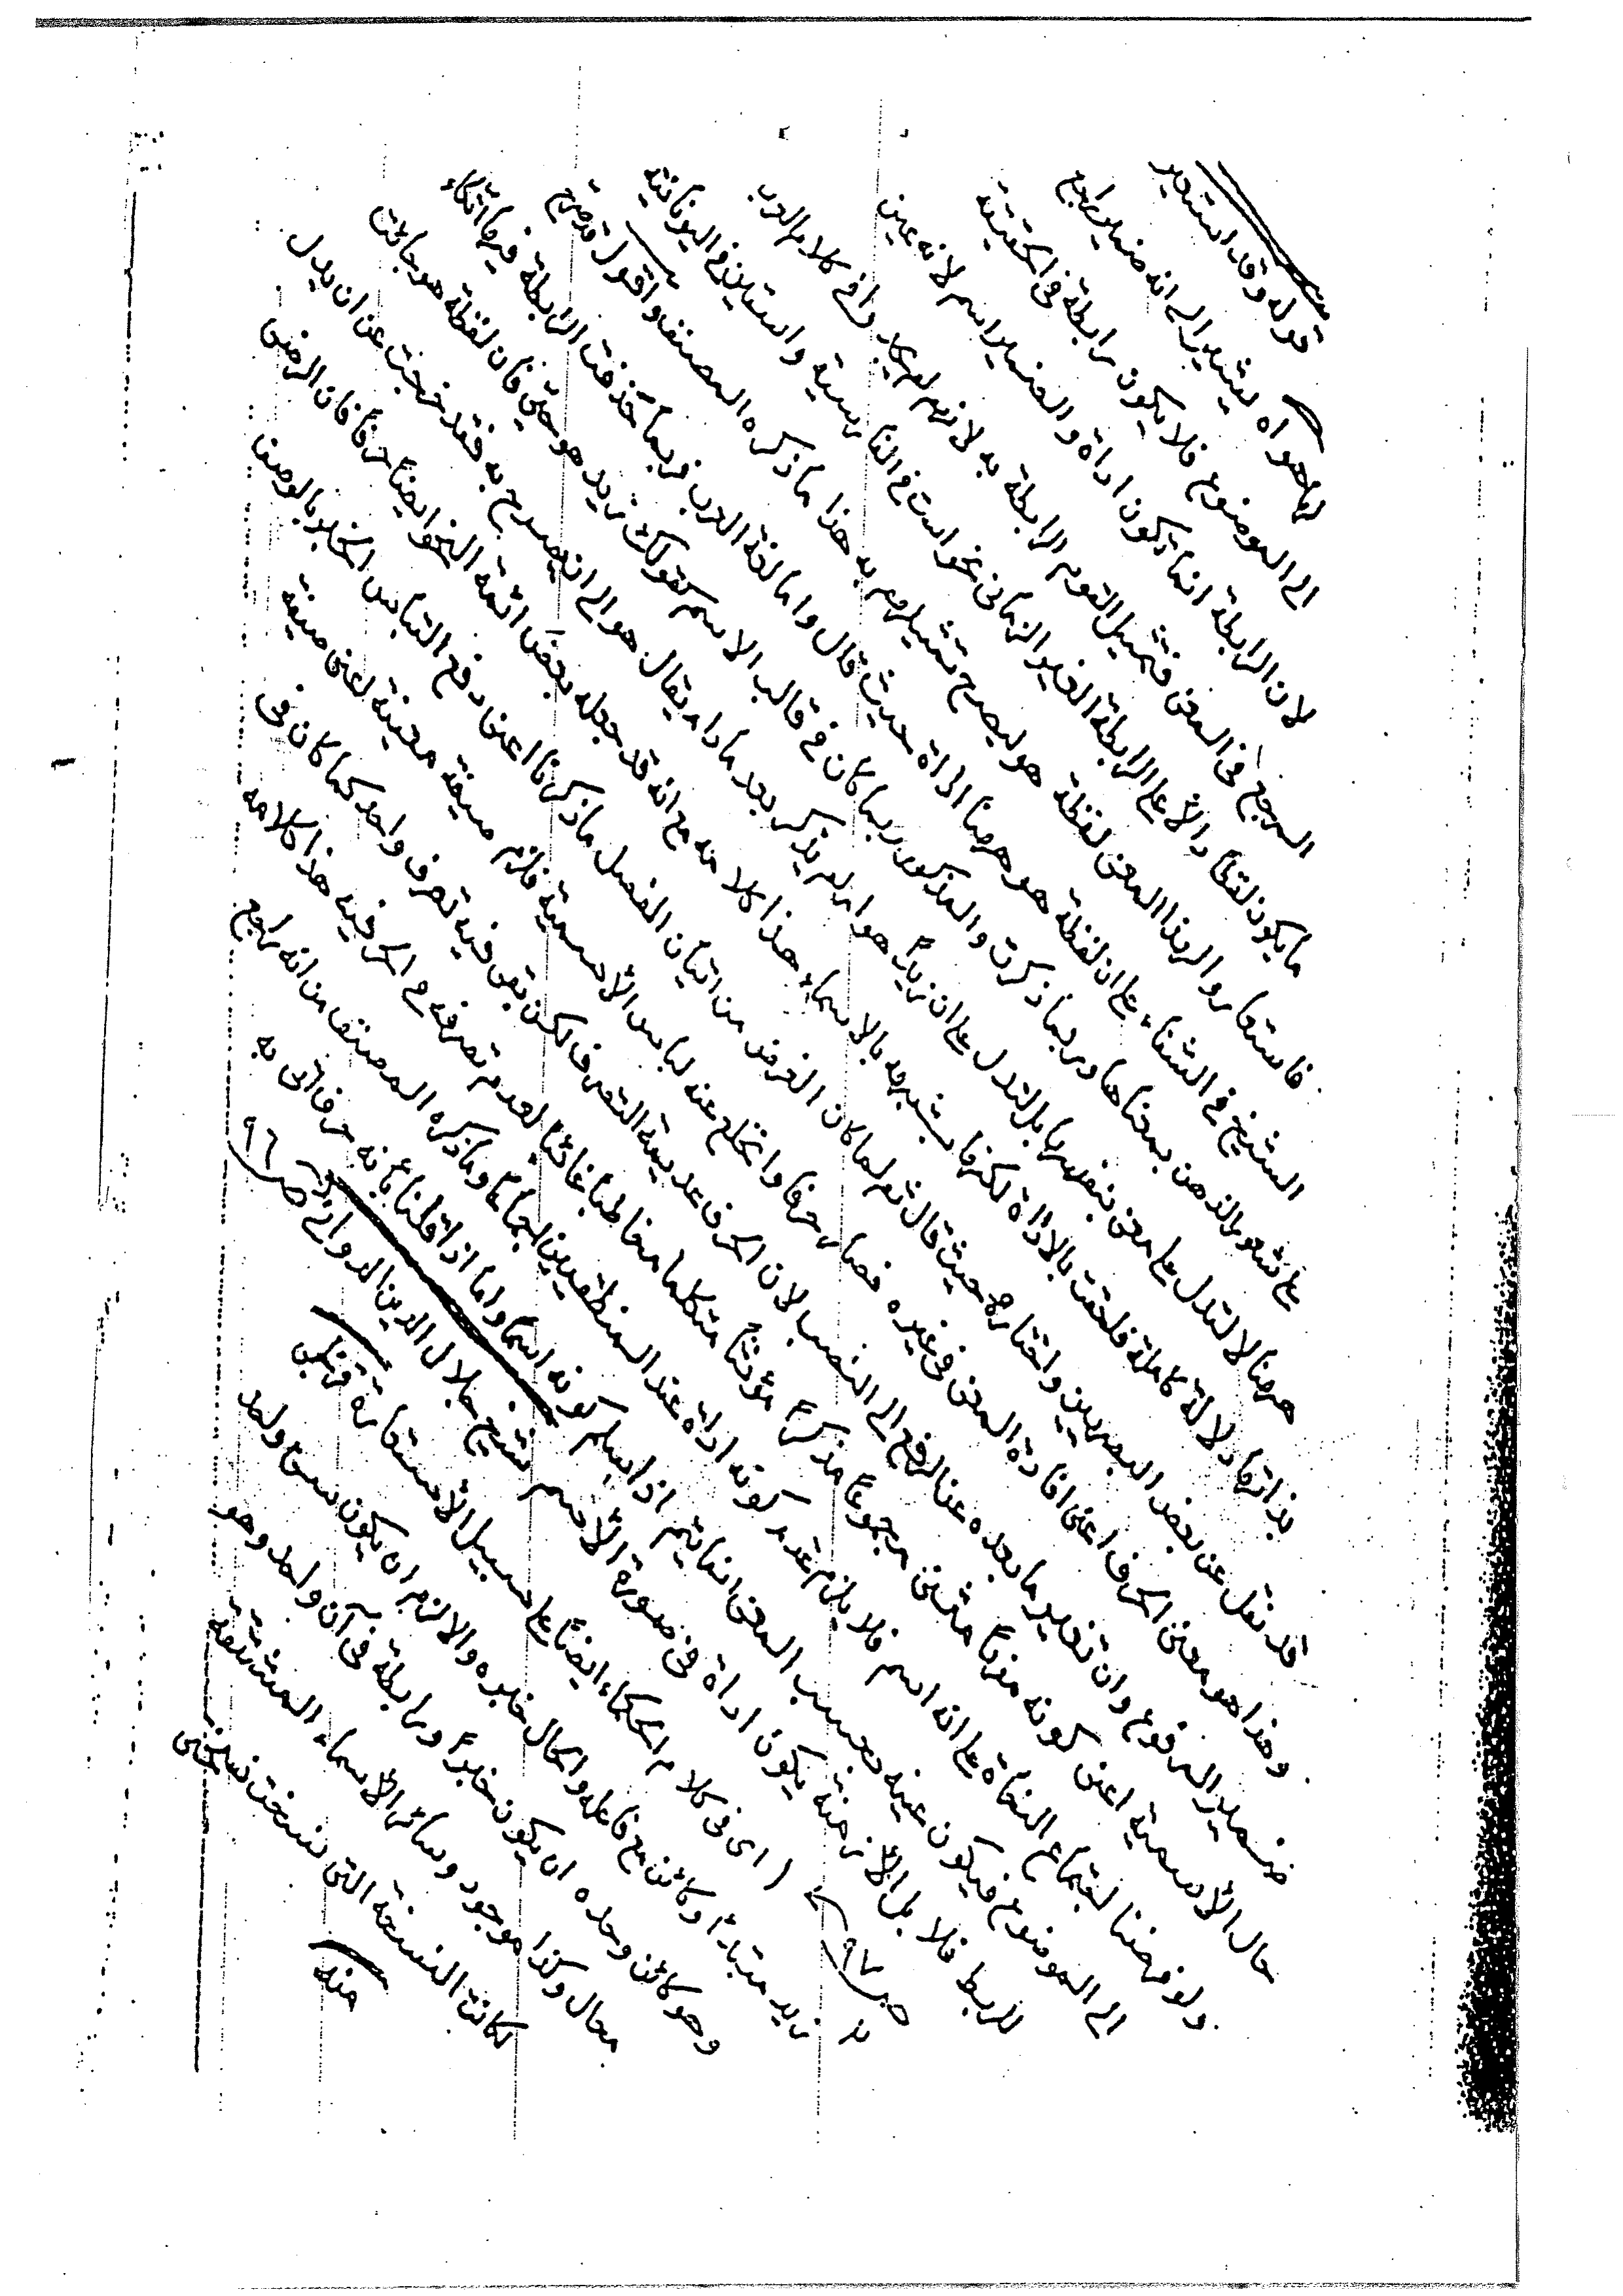 قوله وقد استعير
لها هو آه يشير الى انه ضمير راجع
الى الموضوع فلا يكون رابطة في الحقيقة
لان الرابطة انما تكون اداة والضمير اسم لانه عين
المرجع في المعنى فتمثيل القوم الرابطة به لانهم لم يجدوا في كلام العرب
ما يكون لفظا دالا على الرابطة الغير الزماني نحو است في الفارسية واستين في اليونانية
فاستعاروا لهذا المعنى لفظة هو ليصح تمثيلهم به هذا ما ذكره المصنف واقول قد صرح
الشيخ في الشفاء على ان لفظة هو ههنا اداة حيث قال واما لغة العرب فربما حذفت الرابطة فيها اتكالا
على شعور الذهن بمعناها وربما ذكرت والمذكور ربما كان في قالب الاسم كقولك زيد هو حي فان لفظة هو جائت
ههنا لا لتدل على معنى بنفسها بل لتدل على ان زيدا هو امر لم يذكر بعد ما دام يقال هو الى ان يصرح به فقد خرجت عن ان يدل
بذاتها دلالة كاملة فلحقت بالاداة لكنها شبيهة بالاسماء هذا كلامه مع انه قد جعله بعض ائمة النحو ايضا حرفا فان الرضي
قد نقل عن بعض البصريين واختاره حيث قال ثم لما كان الغرض من اتيان الفصل ما ذكرنا اعني دفع التباس الخبر بالوصف
وهذا هو معنى الحرف اعني افادة المعنى في غيره فصار حرفا وانخلع عنه لباس الاسمية فلزم صيغة معينة لمعنى صيغة
ضمير المرفوع وان تغير ما بعده عن الرفع الى النصب لان الحرف عديمة التصرف لكن بقى فيه تصرف واحد كما كان في
حال الاسمية اعني كونه مفردا مثنى مجموعا مذكرا مؤنثا متكلما مخاطبا غائبا لعدم تصرفه في الحرفية هذا كلامه
ولو فرضنا اجتماع النحاة على انه اسم فلا يلزم عدم كونه اداة عند المنطقيين اجماعا وما ذكره المصنف من انه راجع
الى الموضوع فيكون عينه بحسب المعنى انما يتم اذا سلم كونه اسما واما اذا قلنا بانه حرف اتى به
للربط فلا بل الاز منه يكون اداة في صورة الاسم شرح جلال الدين الدواني ص ٩٦
ص ٩٧ (اى في كلام الحكماء ايضا على سبيل الاستعارة قزلجي
زيد مبتدأ وكائن مع فاعله والحال خبره والا لزم ان يكون سما ولمد
وهو كائن وحده ان يكون خبرا ورابطة في آن واحد وهو
محال وكذا موجود وسائر الاسماء المشتقة
كانت النسخة التي نسخت
منه